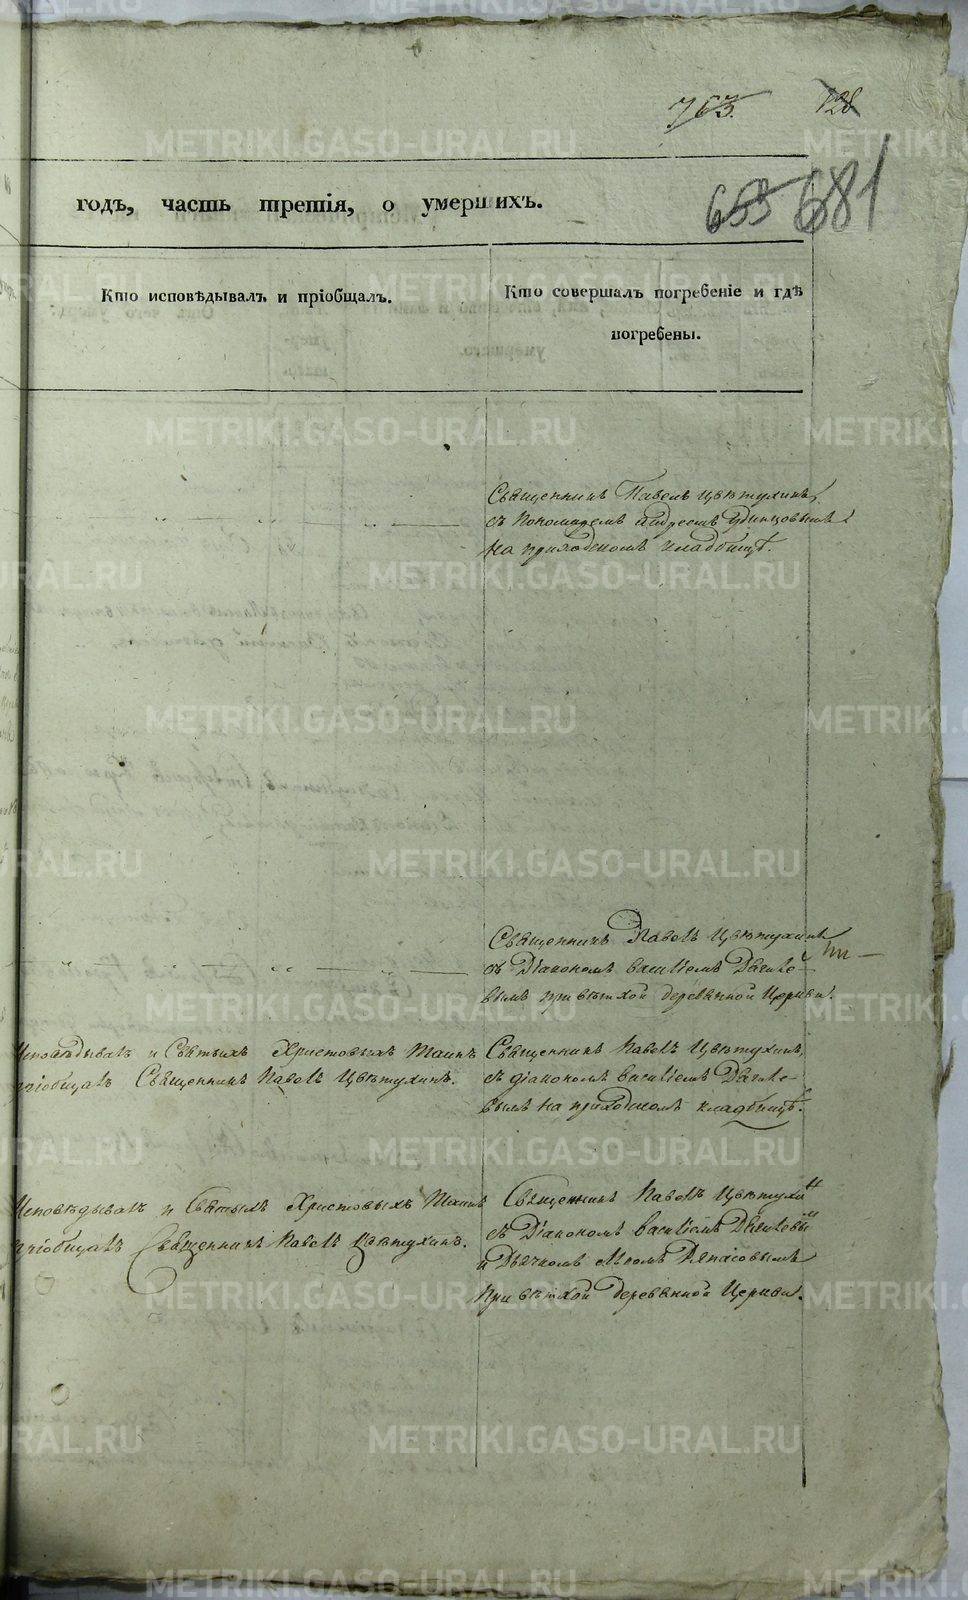 763.
128
годъ, часть третія, о умершихъ.
653 681
Кто исповѣдывалъ и пріобщалъ.
Кто совершалъ погребеніе и гдѣ
погребены.
Священникъ Павелъ Цвѣтухинъ,
съ Пономаремъ Андреемъ Удинцовымъ
на приходскомъ кладбищѣ.
Священникъ Павелъ Цвѣтухинъ
съ Діакономъ Василіемъ
вымъ при ветхой деревянной Церкви.
Исповѣдывалъ и Святыхъ Христовыхъ Таинъ
пріобщалъ Священникъ Павелъ Цвѣтухинъ.
Священникъ Павелъ Цвѣтухинъ,
съ діакономъ Василіемъ
вымъ на приходскомъ кладбищѣ.
Исповѣдывалъ и Святыхъ Христовыхъ Таинъ
пріобщалъ Священникъ Павелъ Цвѣтухинъ.
Священникъ Павелъ Цвѣтухинъ
съ Діакономъ Василіемъ
и Дьячкомъ
при ветхой деревянной Церкви.
METRIKI.GASO-URAL.RU